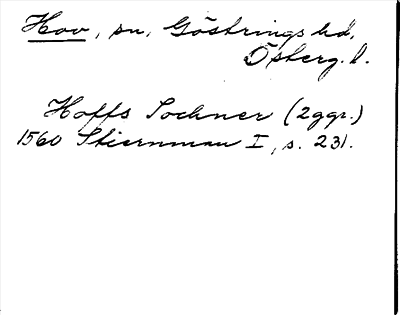 Hov, sn, Göstrings hd,
Österg. l.
Hoffs Sochner (2 ggr.)
1560 Stiernman I, s. 231.